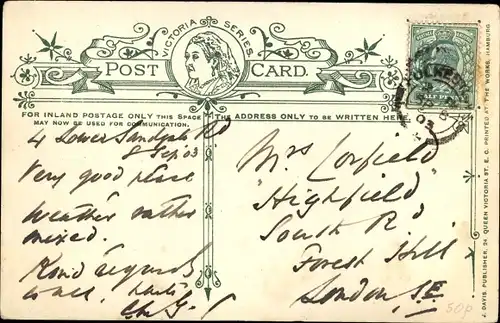 VICTORIA SERIES.
POST CARD.
FOR INLAND POSTAGE ONLY THIS SPACE
MAY NOW BE USED FOR COMMUNICATION.
THE ADDRESS ONLY TO BE WRITTEN HERE.
4 Lower Sandgate Rd
8 Sep 03
Very good place
Weather rather
mixed.
Kind regards
to all.
Mrs Corfield
"Highfield"
South Rd
Forest Hill
London, S.E.
J. DAVIS, PUBLISHER, 24, QUEEN VICTORIA ST. E. C. PRINTED AT THE WORKS, HAMBURG.
50p